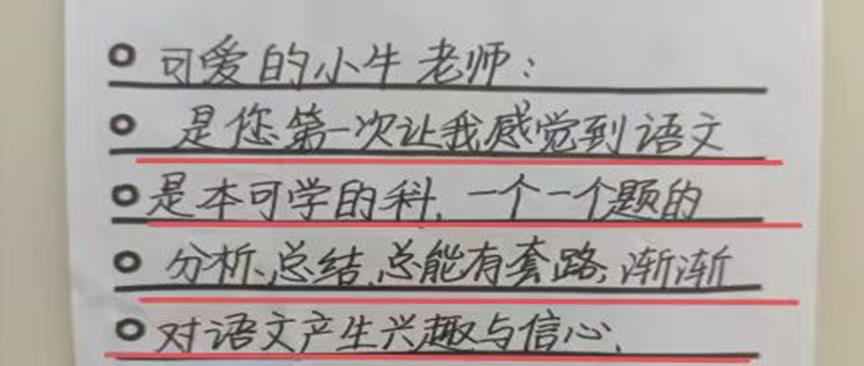 可爱的小牛老师：
是您第一次让我感觉到语文
是本可学的科，一个一个题的
分析、总结，总能有套路，渐渐
对语文产生兴趣与信心，